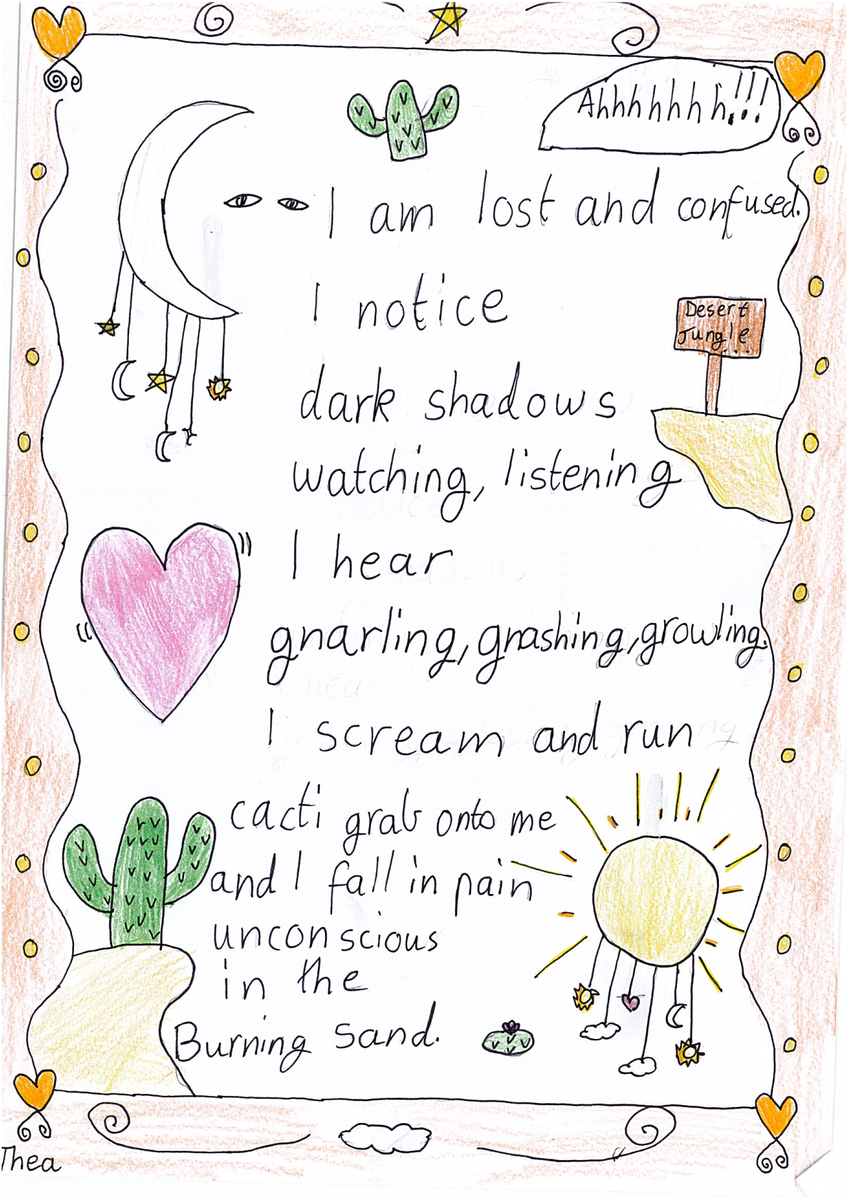 Ahhhhhhh!!!
I am lost and confused.
I notice
Desert
Jungle
dark shadows
watching, listening
I hear
gnarling, gnashing, growling.
I scream and run
cacti grab onto me
and I fall in pain
unconscious
in the
Burning sand.
Thea